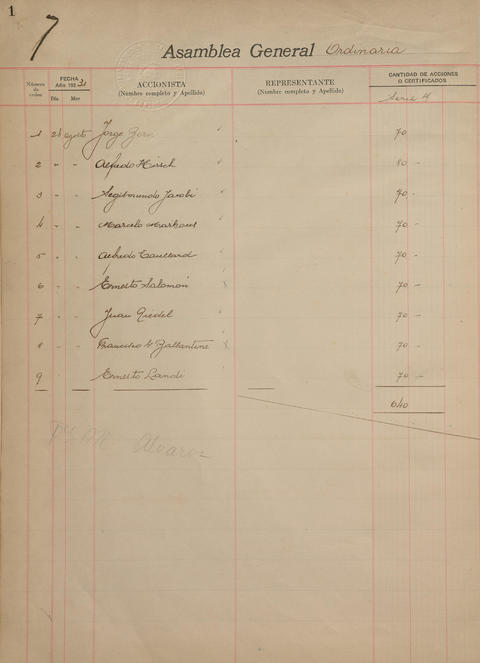 1
7
Asamblea General Ordinaria
Número de orden
FECHA
Año 193 31
Día Mes
ACCIONISTA
(Nombre completo y Apellido)
REPRESENTANTE
(Nombre completo y Apellido)
CANTIDAD DE ACCIONES
O CERTIFICADOS
Serie
1 28 agosto Jorge Born 70
2 " " Alfredo Hirsch 80 -
3 " " Segismundo Jacobi 70 -
4 " " Marcelo 70 -
5 " " Alfredo 70 -
6 " " Ernesto Salomón 70 -
7 " " Juan Riedel 70 -
8 " " Francisco Ballantine 70 -
9 " " Ernesto Landi 70 -
640
Alvarez